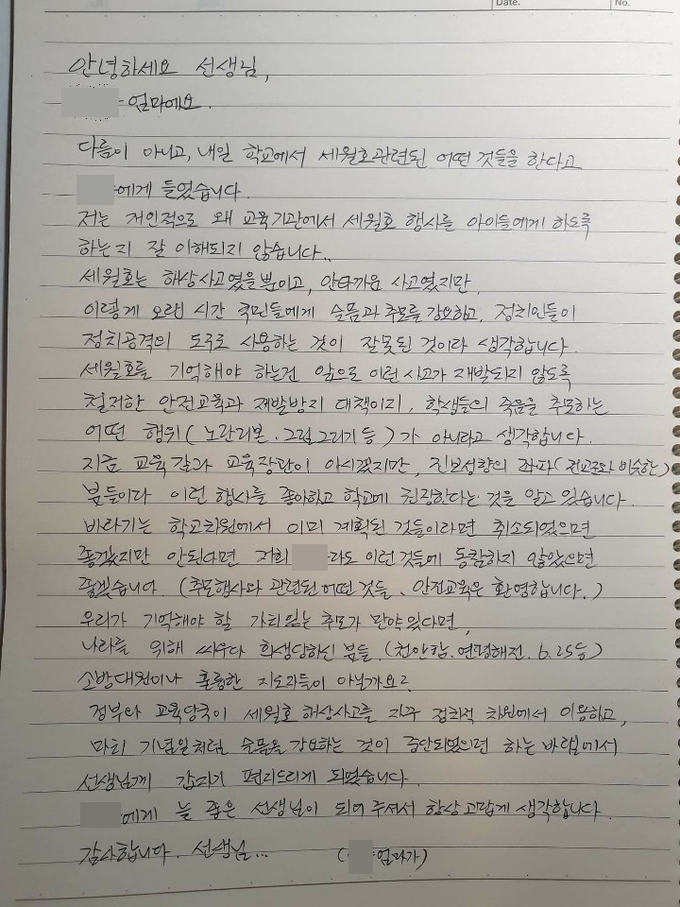 Date.
No.
안녕하세요 선생님,
엄마예요.
다름이 아니고, 내일 학교에서 세월호관련된 어떤 것들을 한다고
에게 들었습니다.
저는 개인적으로 왜 교육기관에서 세월호 행사를 아이들에게 하도록
하는지 잘 이해되지 않습니다..
세월호는 해상사고였을뿐이고, 안타까운 사고였지만,
이렇게 오랜 시간 국민들에게 슬픔과 추모를 강요하고, 정치인들이
정치공격의 도구로 사용하는 것이 잘못된 것이라 생각합니다.
세월호를 기억해야 하는건 앞으로 이런 사고가 재발되지 않도록
철저한 안전교육과 재발방지 대책이지, 학생들의 죽음을 추모하는
어떤 행위(노란리본. 그림그리기 등)가 아니라고 생각합니다.
지금 교육감과 교육장관이 아시겠지만, 진보성향의 좌파(전교조와 비슷한)
분들이다 이런 행사를 좋아하고 학교에 권장한다는 것을 알고 있습니다.
바라기는 학교차원에서 이미 계획된 것들이라면 취소되었으면
좋겠지만 안된다면 저희 라도 이런 것들에 동참하지 않았으면
좋겠습니다. (추모행사와 관련된 어떤것들、안전교육은 환영합니다.)
우리가 기억해야 할 가치있는 추모가 만약 있다면,
나라를 위해 싸우다 희생당하신 분들. (천안함. 연평해전. 6.25등)
소방대원이나 훌륭한 지도자들이 아닐까요?
정부와 교육당국이 세월호 해상사고를 자꾸 정치적 차원에서 이용하고,
마치 기념일처럼 슬픔을 강요하는 것이 중단되었으면 하는 바램에서
선생님께 갑자기 편지드리게 되었습니다.
에게 늘 좋은 선생님이 되어 주셔서 항상 고맙게 생각합니다.
감사합니다. 선생님...
( 엄마가)